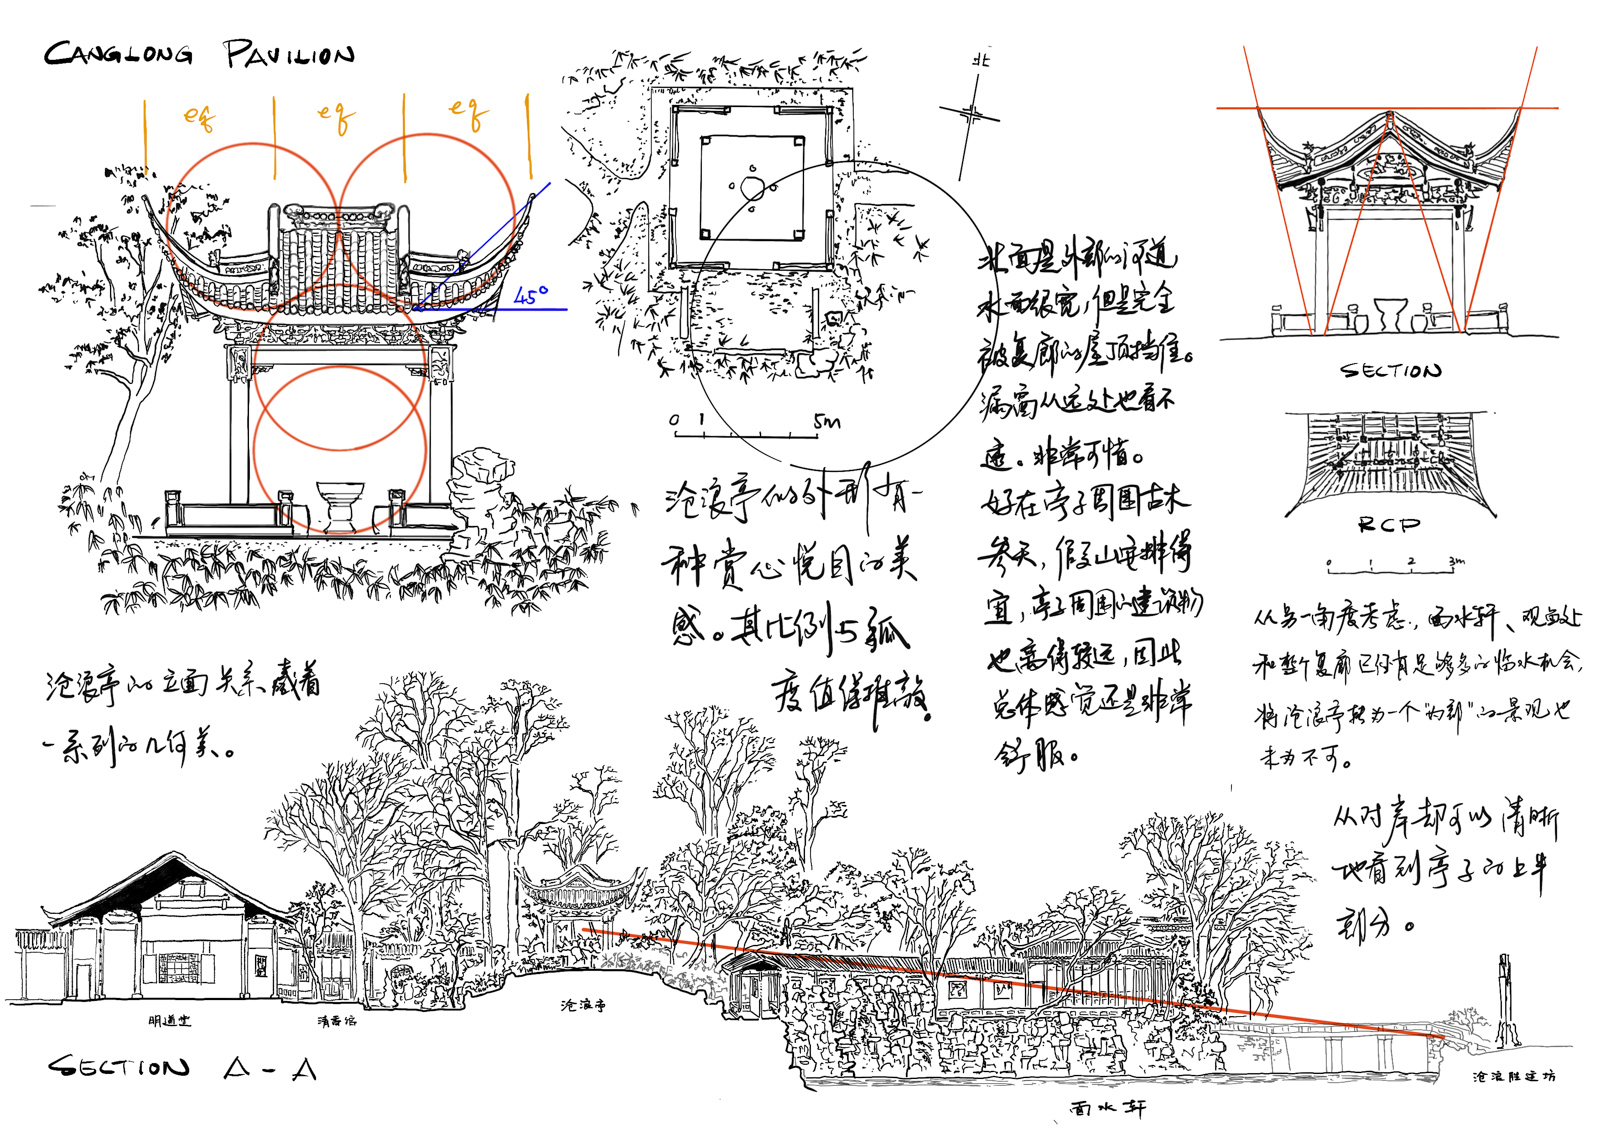 CANGLONG PAVILION
eq eq eq
45°
北
0 1 5m
沧浪亭的立面关系藏着
一系列的几何美。
沧浪亭的外形有一
种赏心悦目的美
感。其比例与弧
度值得推敲。
北面是外部的河道
水面很宽,但是完全
被复廊的屋顶挡住。
漏窗从远处也看不
透。非常可惜。
好在亭子周围古木
参天,假山安排得
宜,亭子周围的建筑物
也离得较远,因此
总体感觉还是非常
舒服。
SECTION
RCP
0 1 2 3m
从另一角度考虑,面水轩、观鱼处
和整个复廊已经有足够多的临水机会,
将沧浪亭转为一个"内部"的景观也
未为不可。
从对岸却可以清晰
地看到亭子的上半
部分。
明道堂
清香馆
沧浪亭
面水轩
沧浪胜迹坊
SECTION A-A